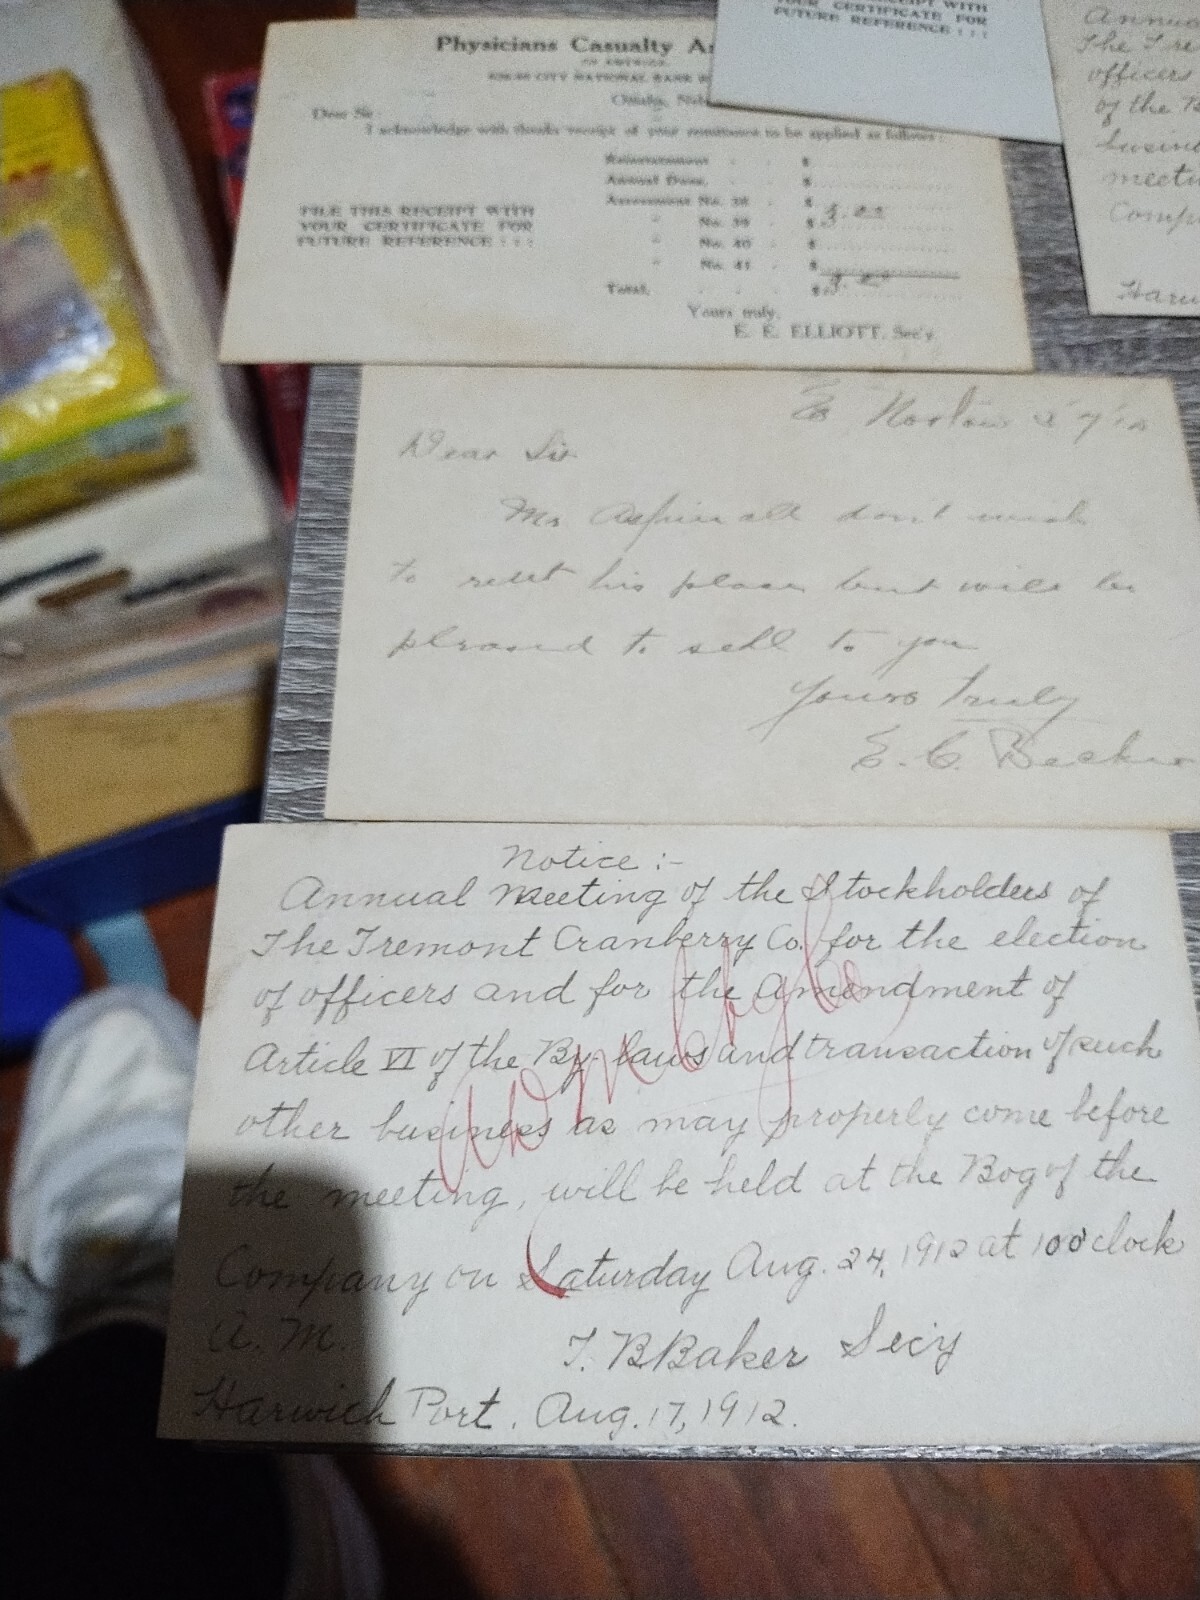 Physicians Casualty
OF AMERICA.
CITY NATIONAL BANK
Omaha,
Dear Sir:
I acknowledge with thanks receipt of your remittance to be applied as follows:
Reinstatement - - $
Annual Dues, - - $
Assessment No. 38 - $
" No. 39 - $ 3.00
" No. 40 - $
" No. 41 - $
Total, - - - $ 3.00
FILE THIS RECEIPT WITH
YOUR CERTIFICATE FOR
FUTURE REFERENCE : : :
Yours truly,
E. E. ELLIOTT, Sec'y.
RECEIPT WITH
YOUR CERTIFICATE FOR
FUTURE REFERENCE : : :
Annual
The Tre
officers
of the B
busine
meetin
Comp
Harw
Dear Sir
Mr Aspinall dont wish
to rent his place but will be
pleased to sell to you
Yours Truly
E. C.
Notice :-
Annual Meeting of the Stockholders of
The Tremont Cranberry Co. for the election
of officers and for the amendment of
Article VI of the By-laws and transaction of such
other business as may properly come before
the meeting, will be held at the Bog of the
Company on Saturday Aug. 24, 1912 at 10 o'clock
A. M.
T. B Baker Sec'y
Harwich Port. Aug. 17, 1912.